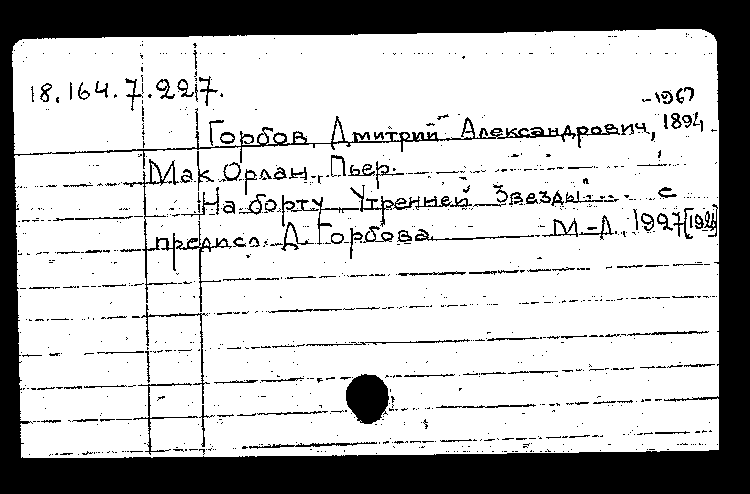 18.164.7.227.
-1967
Горбов, Дмитрий Александрович, 1894
Мак Орлан, Пьер.
На борту "Утренней Звезды"... с
предисл. Д. Горбова. М.-Л., 1927